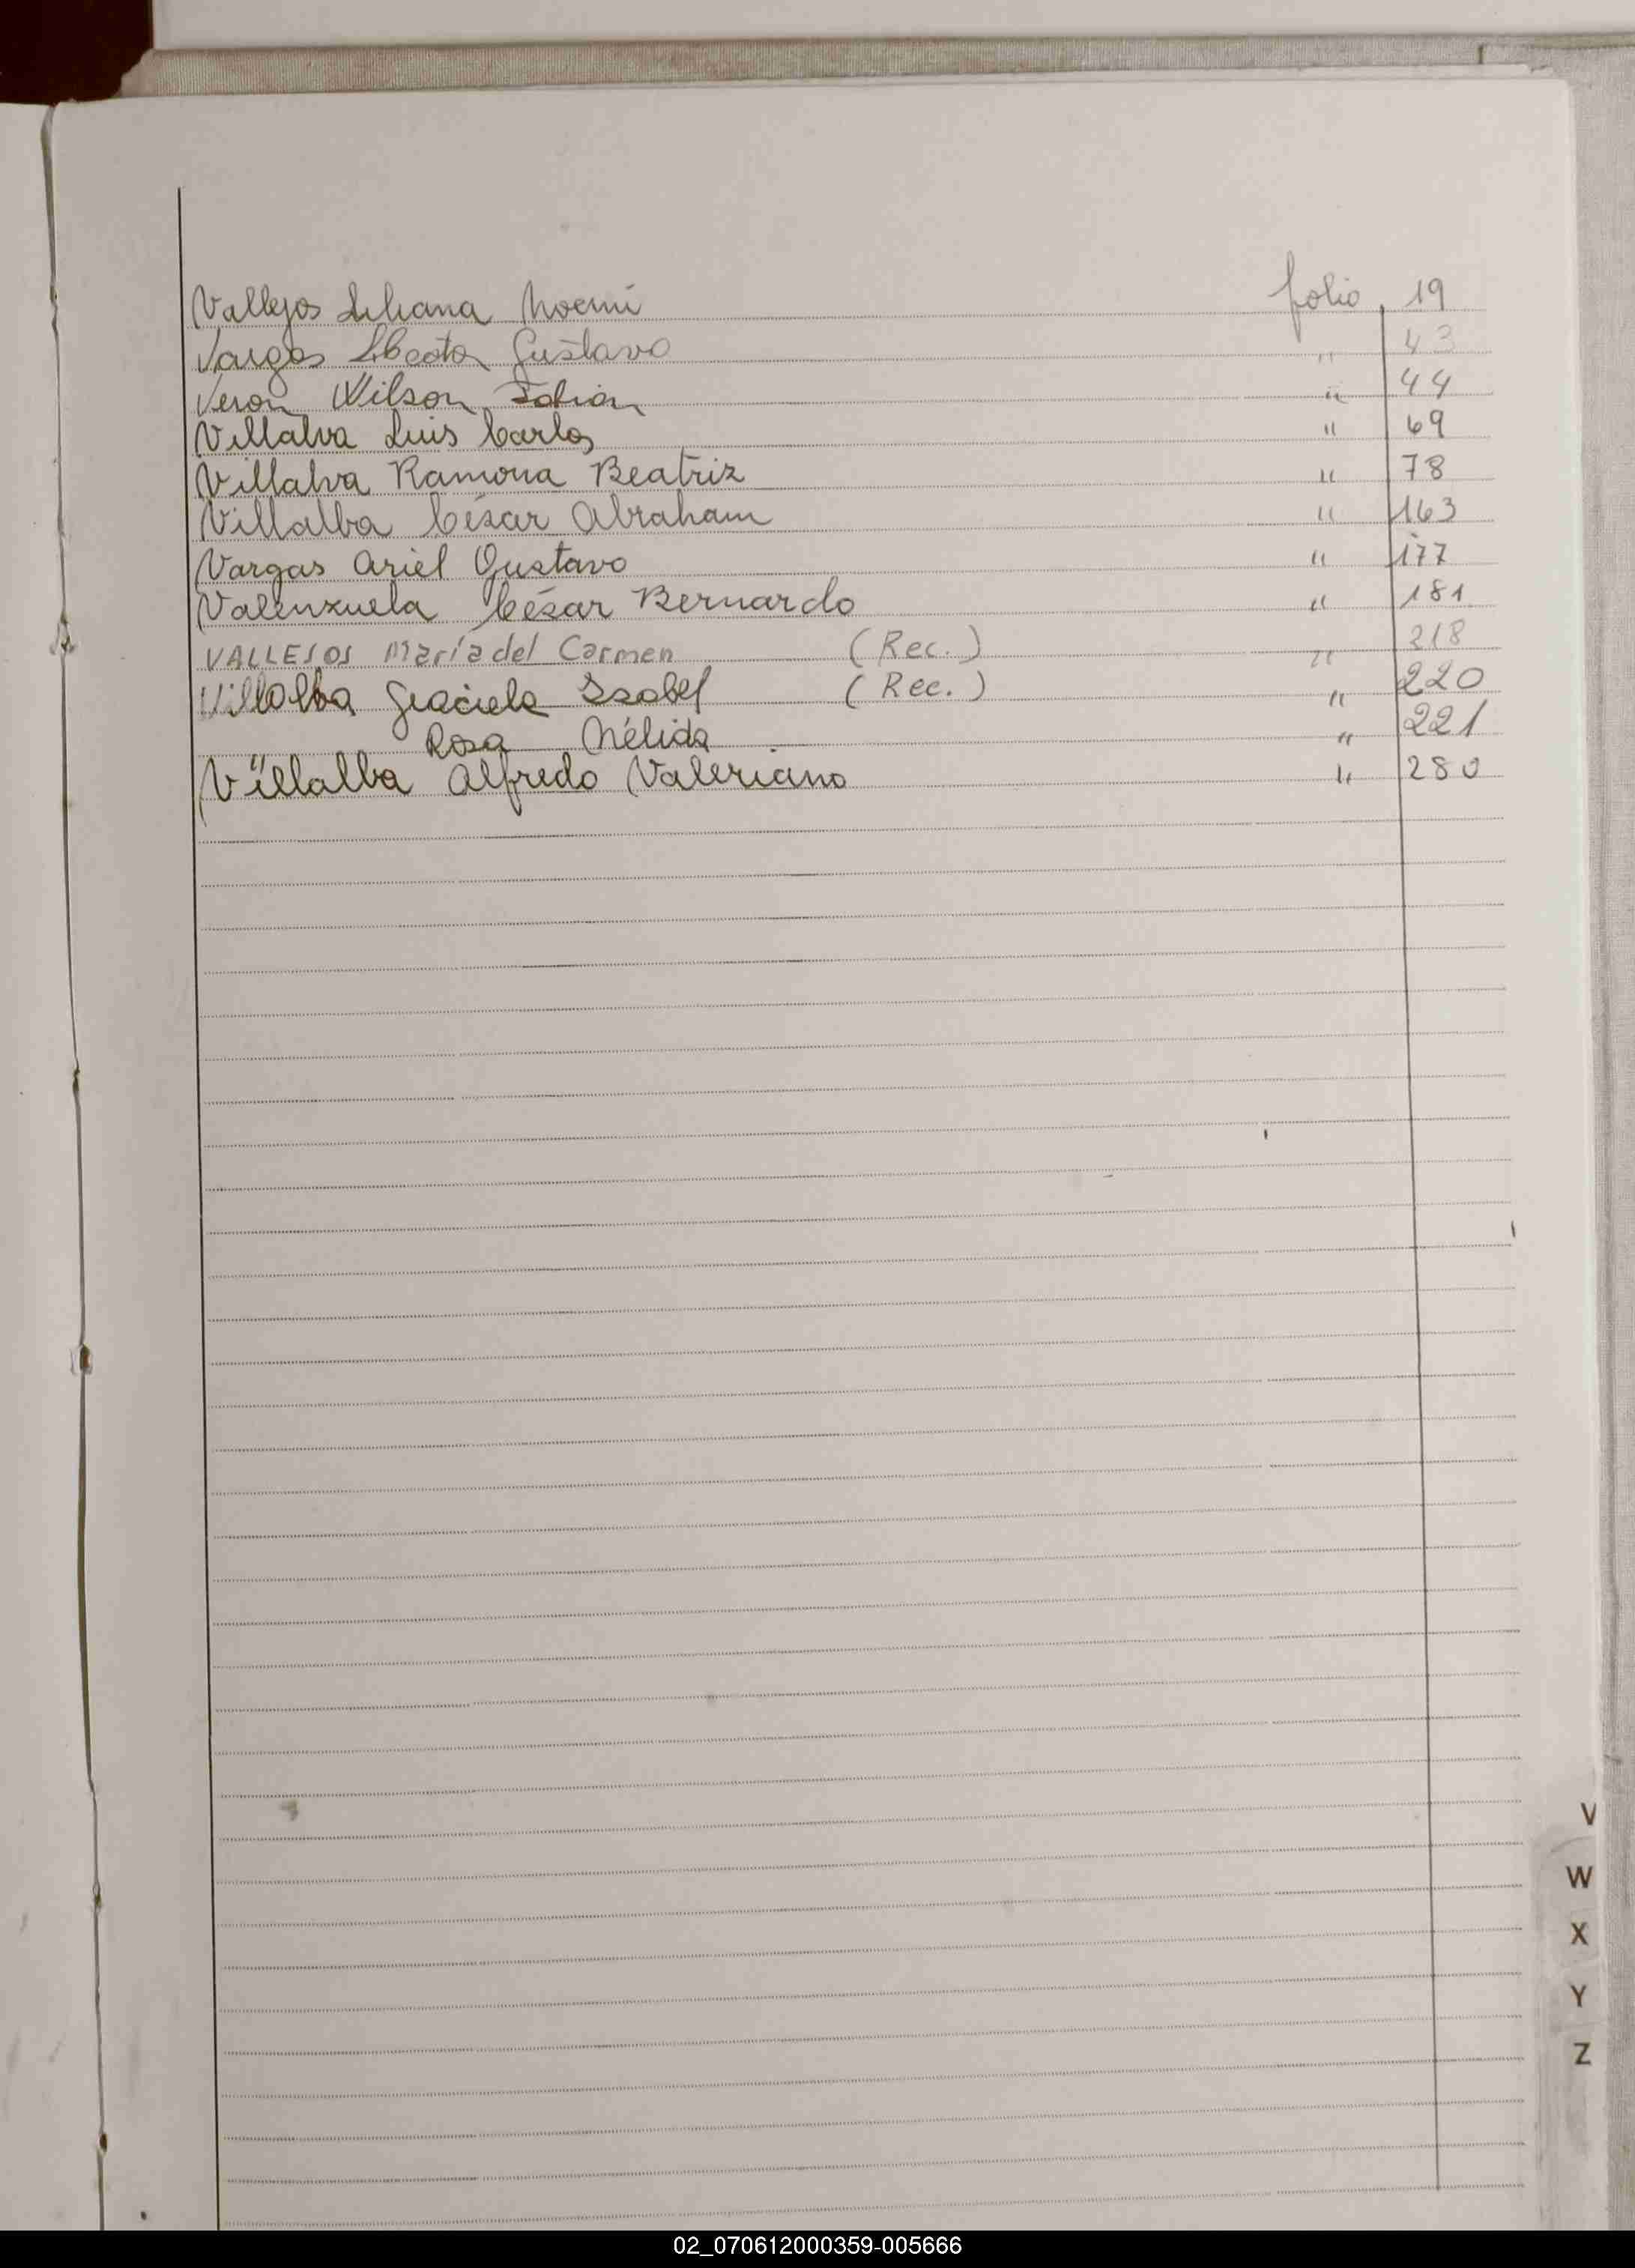 Vallejos Liliana Noemí folio 19
Vargas Gustavo " 43
Veron Wilson Fabian " 44
Villalva Luis Carlos " 69
Villalva Ramona Beatriz " 78
Villalba César Abraham " 163
Vargas Ariel Gustavo " 177
Valenzuela César Bernardo " 181
VALLEJOS María del Carmen (Rec.) " 218
Villalba Graciela Isabel (Rec.) " 220
" Rosa Nélida " 221
Villalba Alfredo Valeriano " 280
V
W
X
Y
Z
02_070612000359-005666